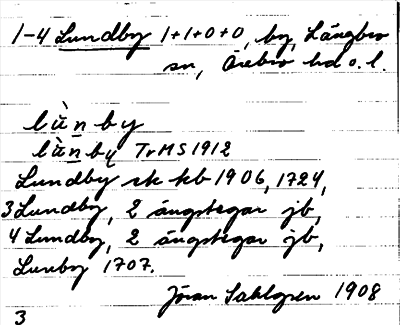 1-4 Lundby 1+1+0+0, by, Längbro
sn, Örebro hd o. l.
lùnby
lùnby TrMS 1912
Lundby sk kb 1906, 1724,
3 Lundby, 2 ängstegar jb,
4 Lundby, 2 ängstegar jb,
Lunby 1707.
Jöran Sahlgren 1908
3